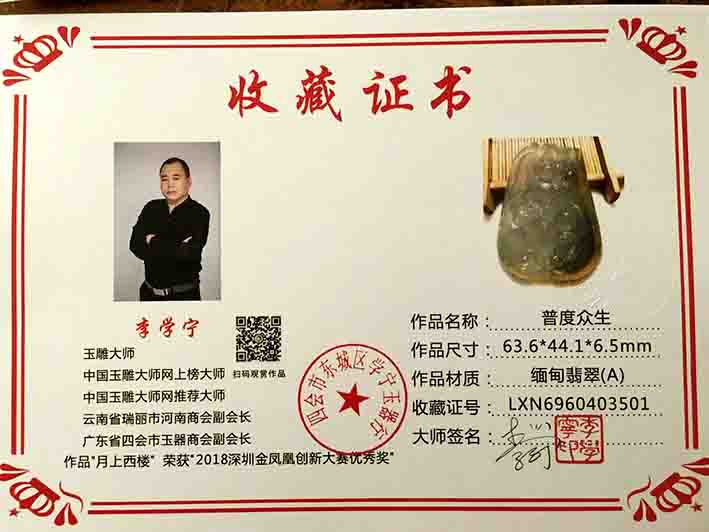 收藏证书
李学宁
扫码观赏作品
玉雕大师
中国玉雕大师网上榜大师
中国玉雕大师网推荐大师
云南省瑞丽市河南商会副会长
广东省四会市玉器商会副会长
作品"月上西楼" 荣获"2018深圳金凤凰创新大赛优秀奖"
四会市东城区学宁玉器行
作品名称: 普度众生
作品尺寸: 63.6*44.1*6.5mm
作品材质: 缅甸翡翠(A)
收藏证号: LXN6960403501
大师签名: